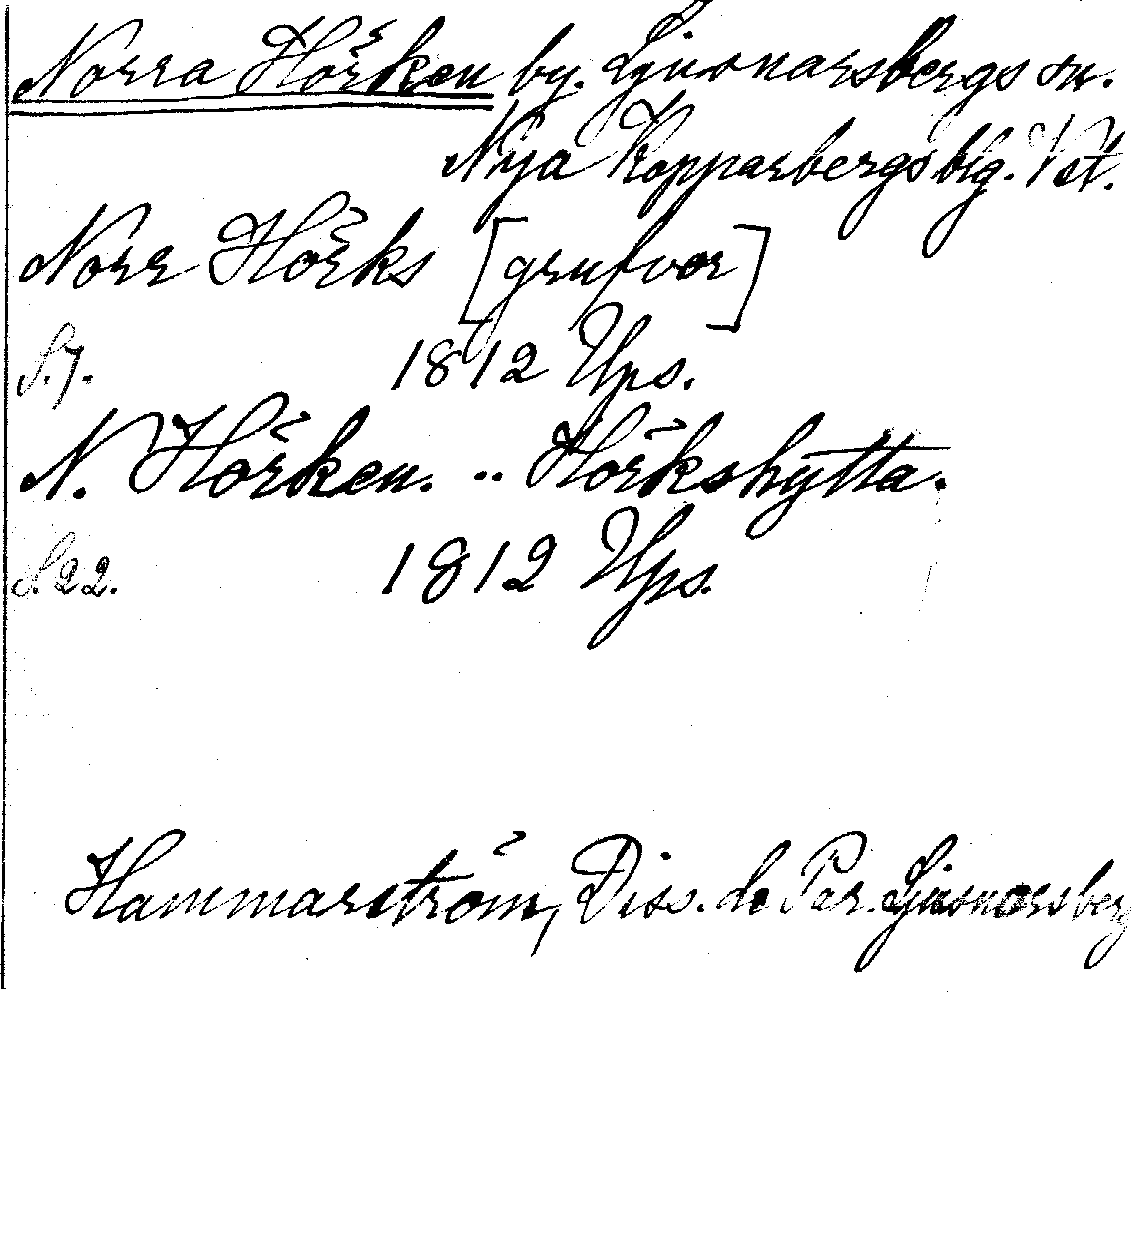 Norra Hörken by. Ljusnarsbergs sn.
Nya Kopparbergs blg. Vst.
Norr Hörks [grufvor]
S. 7. 1812 Ups.
N. Hörken. .. Hörkshytta.
S. 22. 1812 Ups.
Hammarström, Diss. de Par. Ljusnarsberg